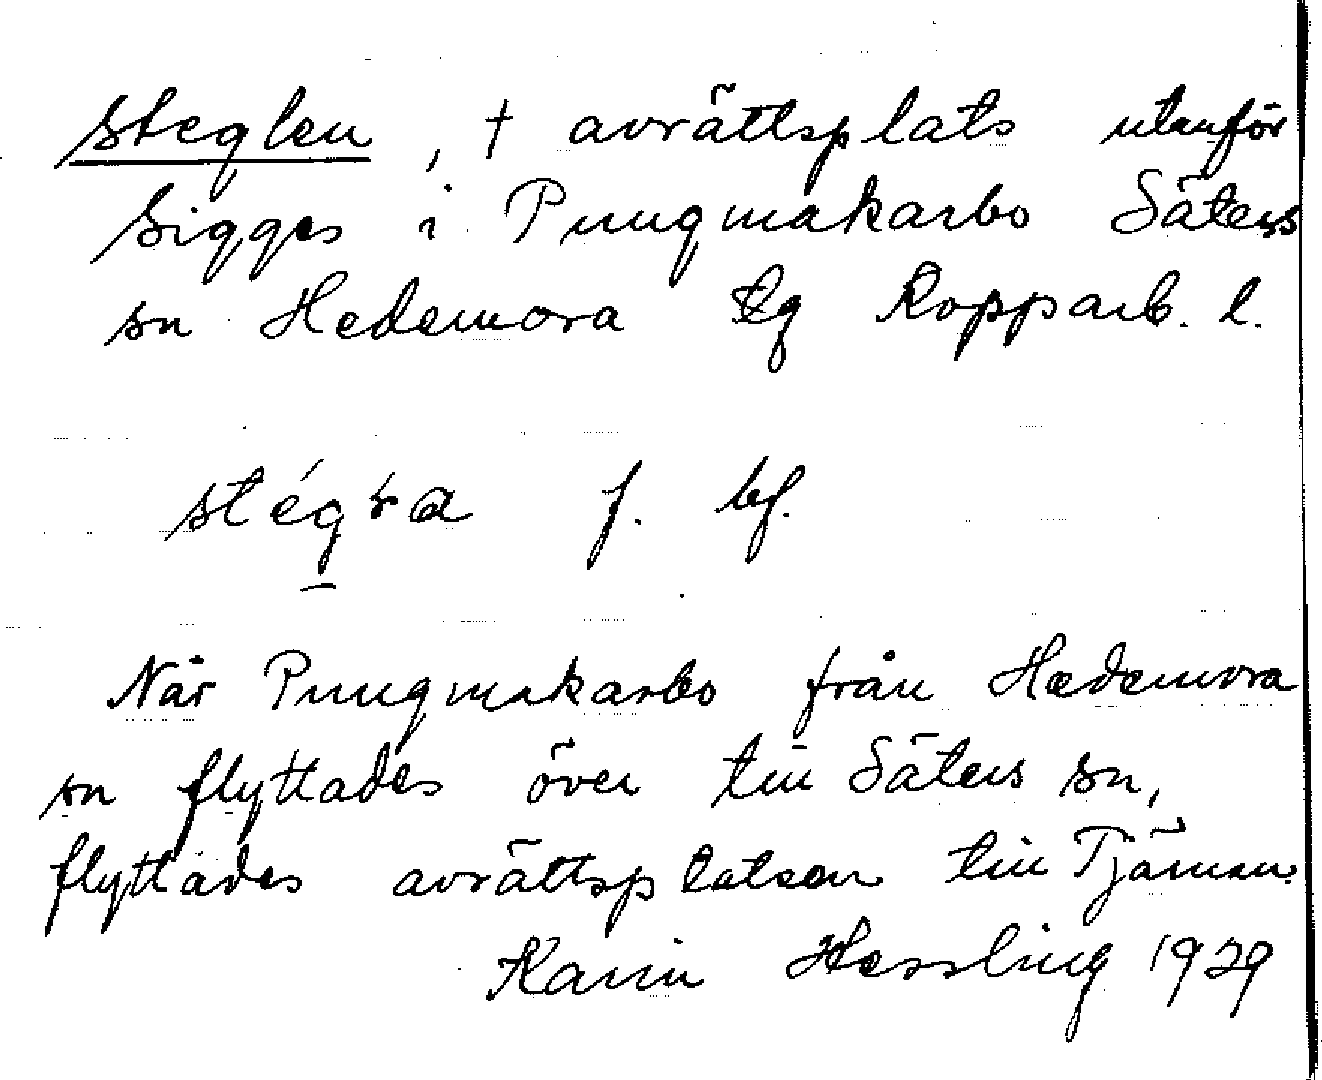 Steglen, † avrättsplats utanför
Sigges i Pungmakarbo Säters
sn Hedemora tg Kopparb. l.
stégra f. bf.
När Pungmakarbo från Hedemora
sn flyttades över till Säters sn,
flyttades avrättsplatsen till Tjärnan.
Karin Hessling 1929